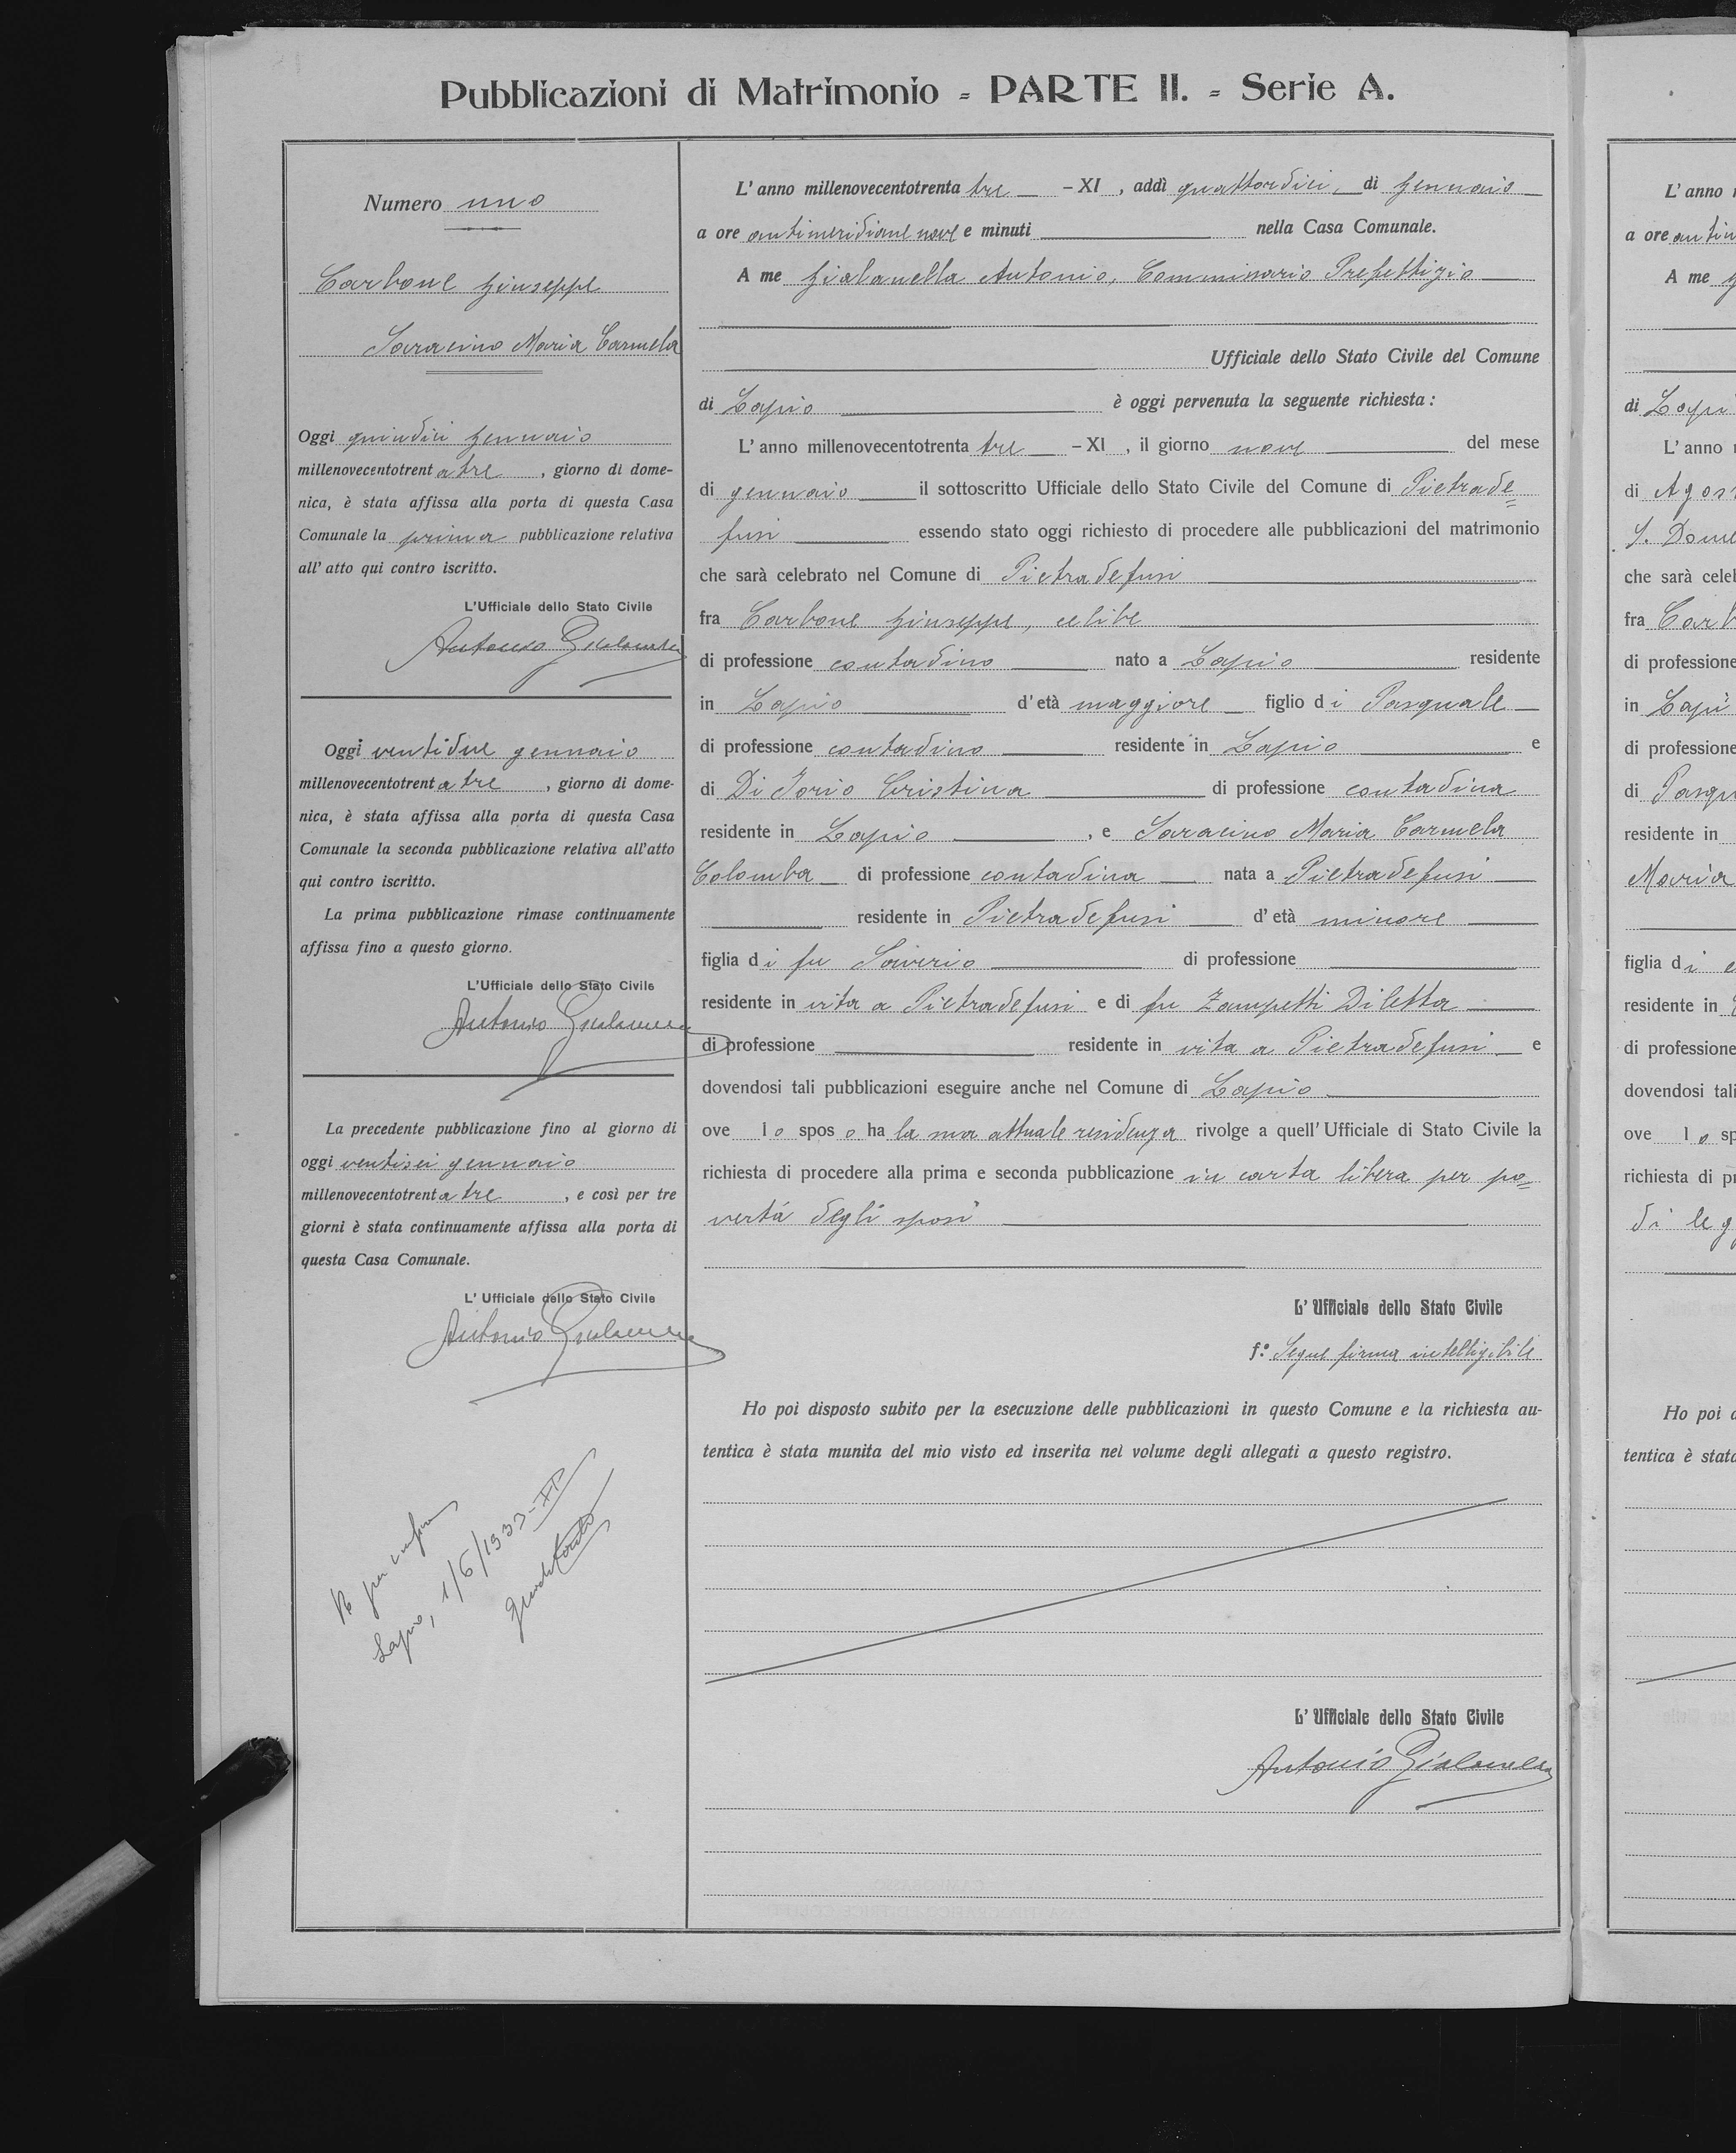 Pubblicazioni di Matrimonio - PARTE II. - Serie A.
Numero uno
Carbone Giuseppe
Saracino Maria Carmela
Oggi quindici gennaio
millenovecentotrentatre, giorno di dome-
nica, è stata affissa alla porta di questa Casa
Comunale la prima pubblicazione relativa
all'atto qui contro iscritto.
L'Ufficiale dello Stato Civile
Antonio Gialanella
Oggi ventidue gennaio
millenovecentotrentatre, giorno di dome-
nica, è stata affissa alla porta di questa Casa
Comunale la seconda pubblicazione relativa all'atto
qui contro iscritto.
La prima pubblicazione rimase continuamente
affissa fino a questo giorno.
L'Ufficiale dello Stato Civile
Antonio Gialanella
La precedente pubblicazione fino al giorno di
oggi ventisei gennaio
millenovecentotrentatre, e così per tre
giorni è stata continuamente affissa alla porta di
questa Casa Comunale.
L'Ufficiale dello Stato Civile
Antonio Gialanella
Lapio, 1/6/1933-XI
L'anno millenovecentotrenta tre - XI, addì quattordici, di Gennaio
a ore antimeridiane nove e minuti nella Casa Comunale.
A me Gialanella Antonio, Commissario Prefettizio
Ufficiale dello Stato Civile del Comune
di Lapio è oggi pervenuta la seguente richiesta:
L'anno millenovecentotrenta tre - XI, il giorno nove del mese
di gennaio il sottoscritto Ufficiale dello Stato Civile del Comune di Pietrade=
fusi essendo stato oggi richiesto di procedere alle pubblicazioni del matrimonio
che sarà celebrato nel Comune di Pietradefusi
fra Carbone Giuseppe, celibe
di professione contadino nato a Lapio residente
in Lapio d'età maggiore figlio di Pasquale
di professione contadino residente in Lapio e
di Di Iorio Cristina di professione contadina
residente in Lapio, e Saracino Maria Carmela
Colomba di professione contadina nata a Pietradefusi
residente in Pietradefusi d'età minore
figlia di fu Saverio di professione
residente in vita a Pietradefusi e di fu Zampetti Diletta
di professione residente in vita a Pietradefusi e
dovendosi tali pubblicazioni eseguire anche nel Comune di Lapio
ove lo sposo ha la sua attuale residenza rivolge a quell'Ufficiale di Stato Civile la
richiesta di procedere alla prima e seconda pubblicazione in carta libera per po=
vertà degli sposi
L'Ufficiale dello Stato Civile
f.º Segue firma intelligibile
Ho poi disposto subito per la esecuzione delle pubblicazioni in questo Comune e la richiesta au-
tentica è stata munita del mio visto ed inserita nel volume degli allegati a questo registro.
L'Ufficiale dello Stato Civile
Antonio Gialanella
L'anno
a ore antim
A me
di Lapi
L'anno
di Agos
S. Dome
che sarà cele
fra Carb
di professione
in Lapi
di professione
di Pasqu
residente in
Maria
figlia di
residente in
di professione
dovendosi tali
ove lo sp
richiesta di p
di leg
Ho poi
tentica è stat